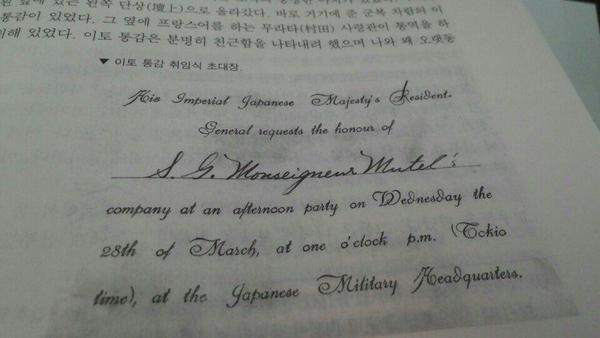 왼쪽 단상(壇上)으로 올라갔다. 바로 거기에 준 군복 차림의 이
통감이 있었다. 그 옆에 프랑스어를 하는 무라타(村田) 사령관이 통역을 하
해 있었다. 이토 통감은 분명히 친근함을 나타내려 했으며 나와 꽤 오랫동
▼ 이토 통감 취임식 초대장.
His Imperial Japanese Majesty's Resident-
General requests the honour of
S. G. Monseigneur Mutel's
company at an afternoon party on Wednesday the
28th of March, at one o'clock p.m. (Tokio
time), at the Japanese Military Headquarters.